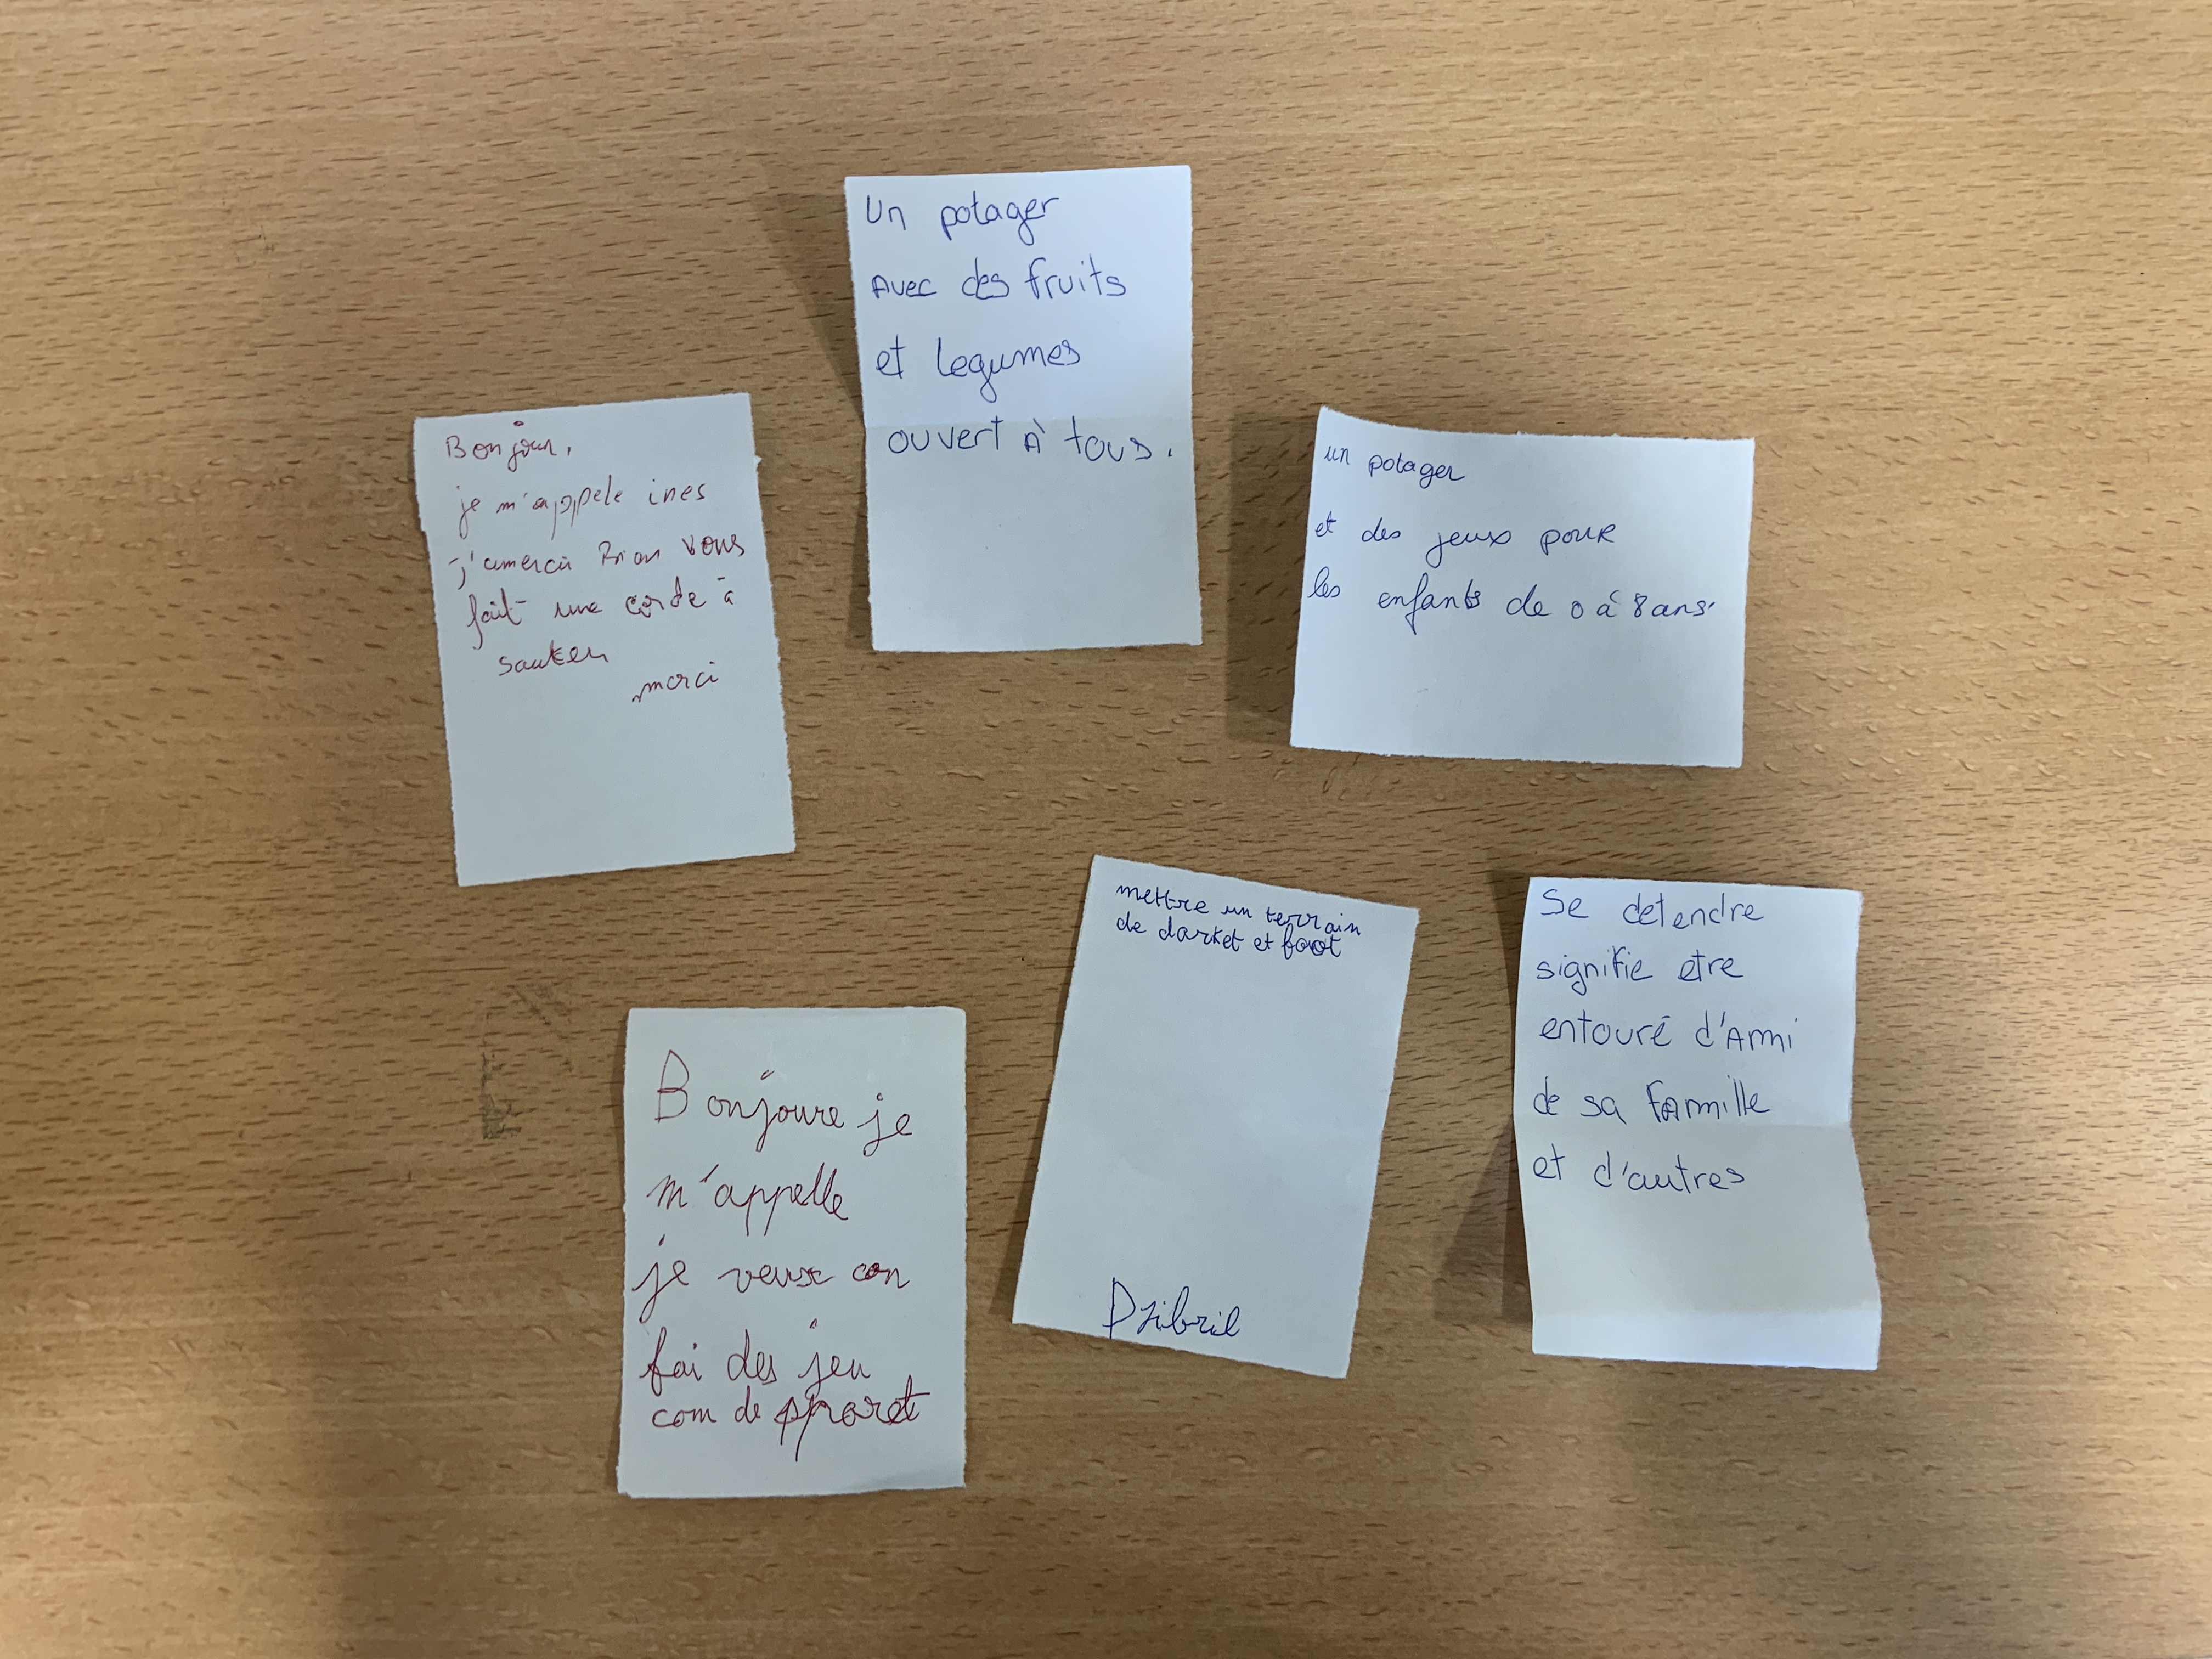 Un potager
Avec des fruits
et legumes
ouvert à tous.
Bonjour,
je m'appele ines
j'amerai Bian vous
fait une corde à
sauter
merci
un potager
et des jeux pour
les enfants de 0 à 8 ans.
mettre un terrain
de darket et foot
Dzibril
Se detendre
signifie etre
entouré d'Ami
de sa famille
et d'autres
Bonjoure je
m'appelle
je veux con
fai des jeu
com de